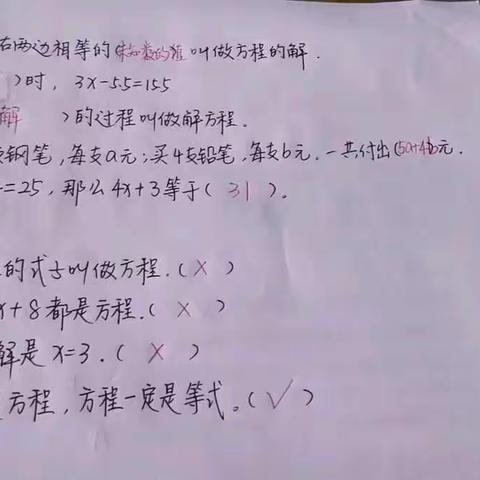 右两边相等的(未知数的值 叫做方程的解.
)时, 3x-55=155
解 )的过程叫做解方程.
支钢笔,每支a元;买4支铅笔,每支b元.一共付出(5a+4b)元.
=25,那么4x+3等于( 31 )。
的式子叫做方程.(×)
x+8都是方程.(×)
解是x=3.(×)
方程,方程一定是等式。(√)